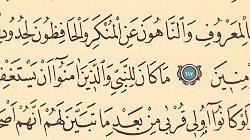 لْمَعْرُوفِ وَالنَّاهُونَ عَنِ الْمُنْكَرِ وَالْحَافِظُونَ لِحُدُودِ
مِنِينَ ١١٢ مَا كَانَ لِلنَّبِيِّ وَالَّذِينَ اٰمَنُٓوا اَنْ يَسْتَغْفِ
كَانُٓوا اُو۬لِي قُرْبٰى مِنْ بَعْدِ مَا تَبَيَّنَ لَهُمْ اَنَّهُمْ اَصْ